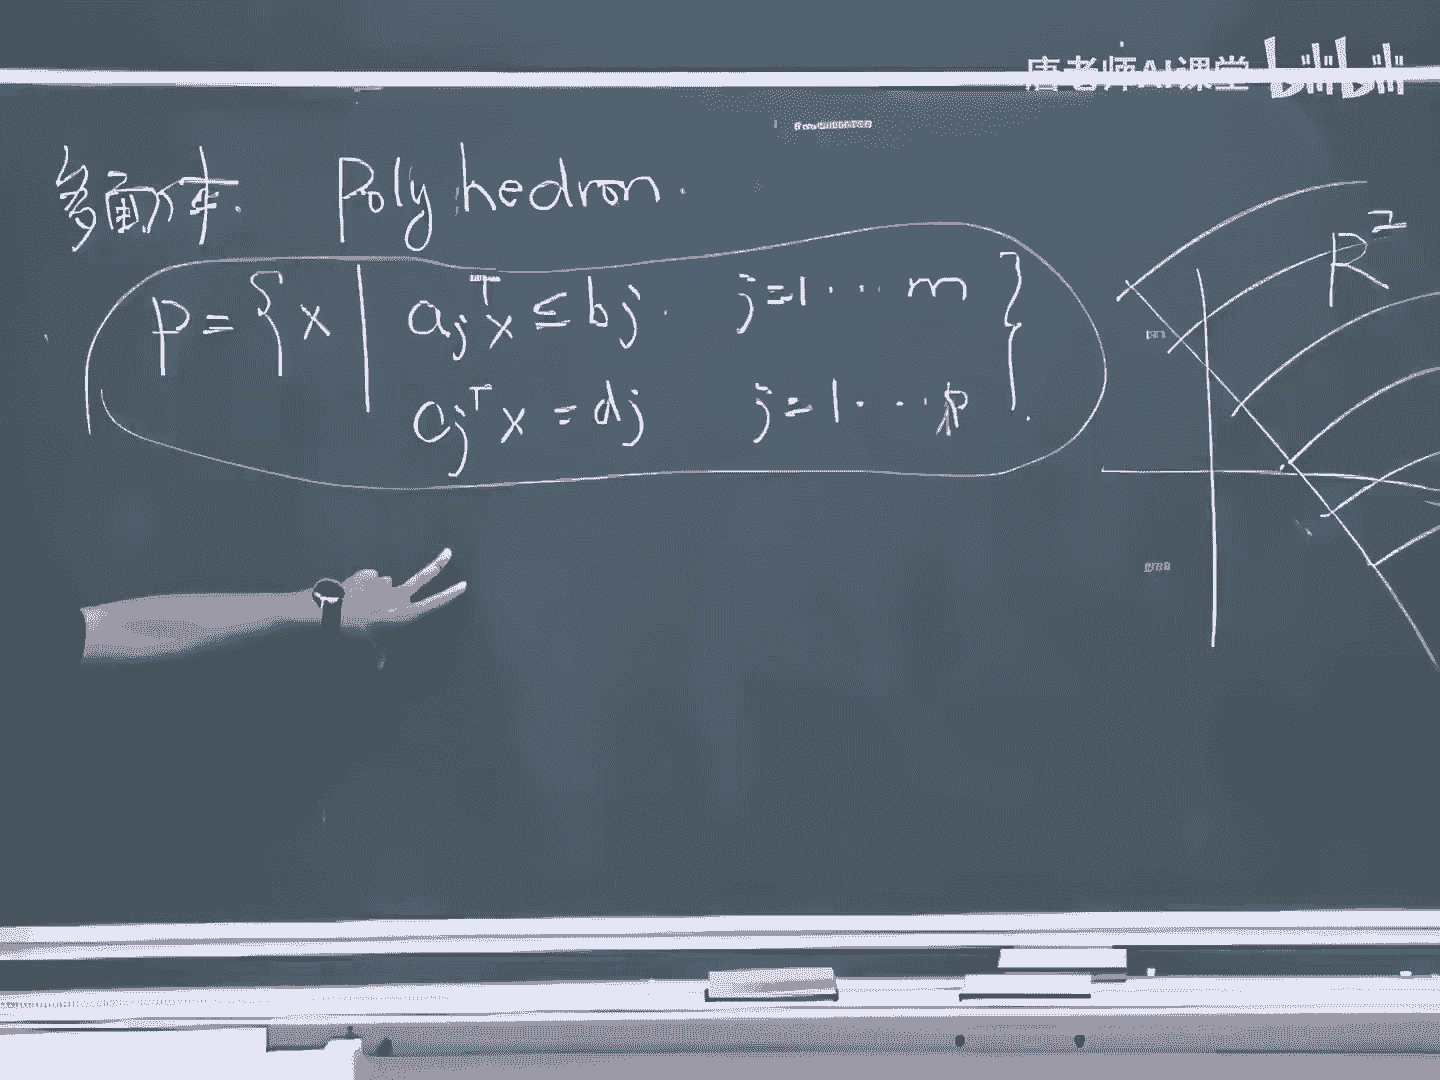 唐老师AI课堂 bilibili
多面体. Polyhedron.
P = { x | a_j^T x ≤ b_j. j=1 ··· m }
c_j^T x = d_j j=1 ··· p .
R^2